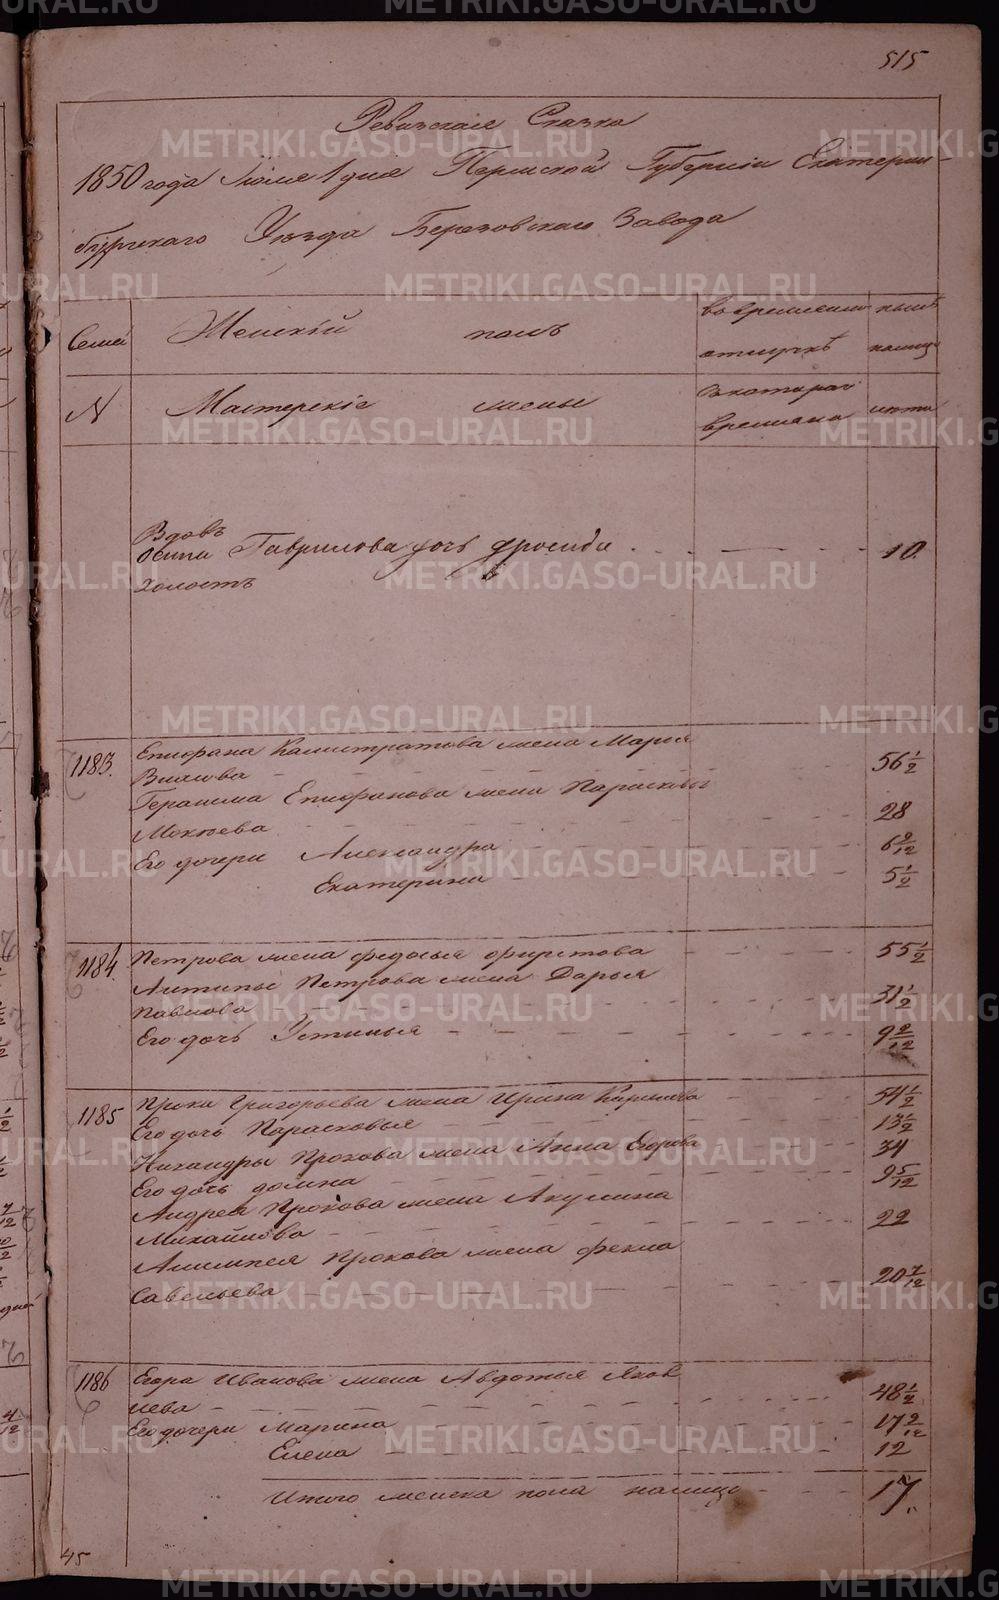 515
Ревизская Сказка
1850 года Июля 1 дня Пермской Губернии Екатерин-
бургскаго Уезда Березовскаго Завода
Семей Женскій полъ во временной ныне
отлучкѣ налицо
N Мастерскіе жены съ котораго лета
времени
Вдовъ
Осипа Гаврилова дочь Фросида 10.
холостъ
1183. Епифана Калистратова жена Марья
56 1/2
Герасима Епифанова жена Парасковья
Мокіева 28
Его дочери Александра 6 9/12
Екатерина 5 1/2
1184. Петрова жена Федосья Фирстова 55 1/2
Антипы Петрова жена Дарья
Павлова 31 1/2
Его дочь Устинья 9 2/12
1185 Прока Григорьева жена Ирина Кирилова 54 1/2
Его дочь Парасковья 13 1/2
Никандры Прохова жена Анна Егорова 34
Его дочь Домна 9 5/12
Андрея Прохова жена Акулина
Михайлова 22
Алимпея Прохова жена Фекла
Савельева 20 7/12
1186 Егора Иванова жена Авдотья Яков
лева 48 1/2
Его дочери Марина 17 2/12
Елена 12
Итого женска пола налицо 17.
45
METRIKI.GASO-URAL.RU